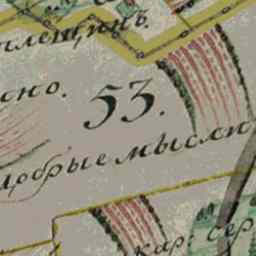 плещицъ.
сно. 53.
Добрые мысли
кар: сер